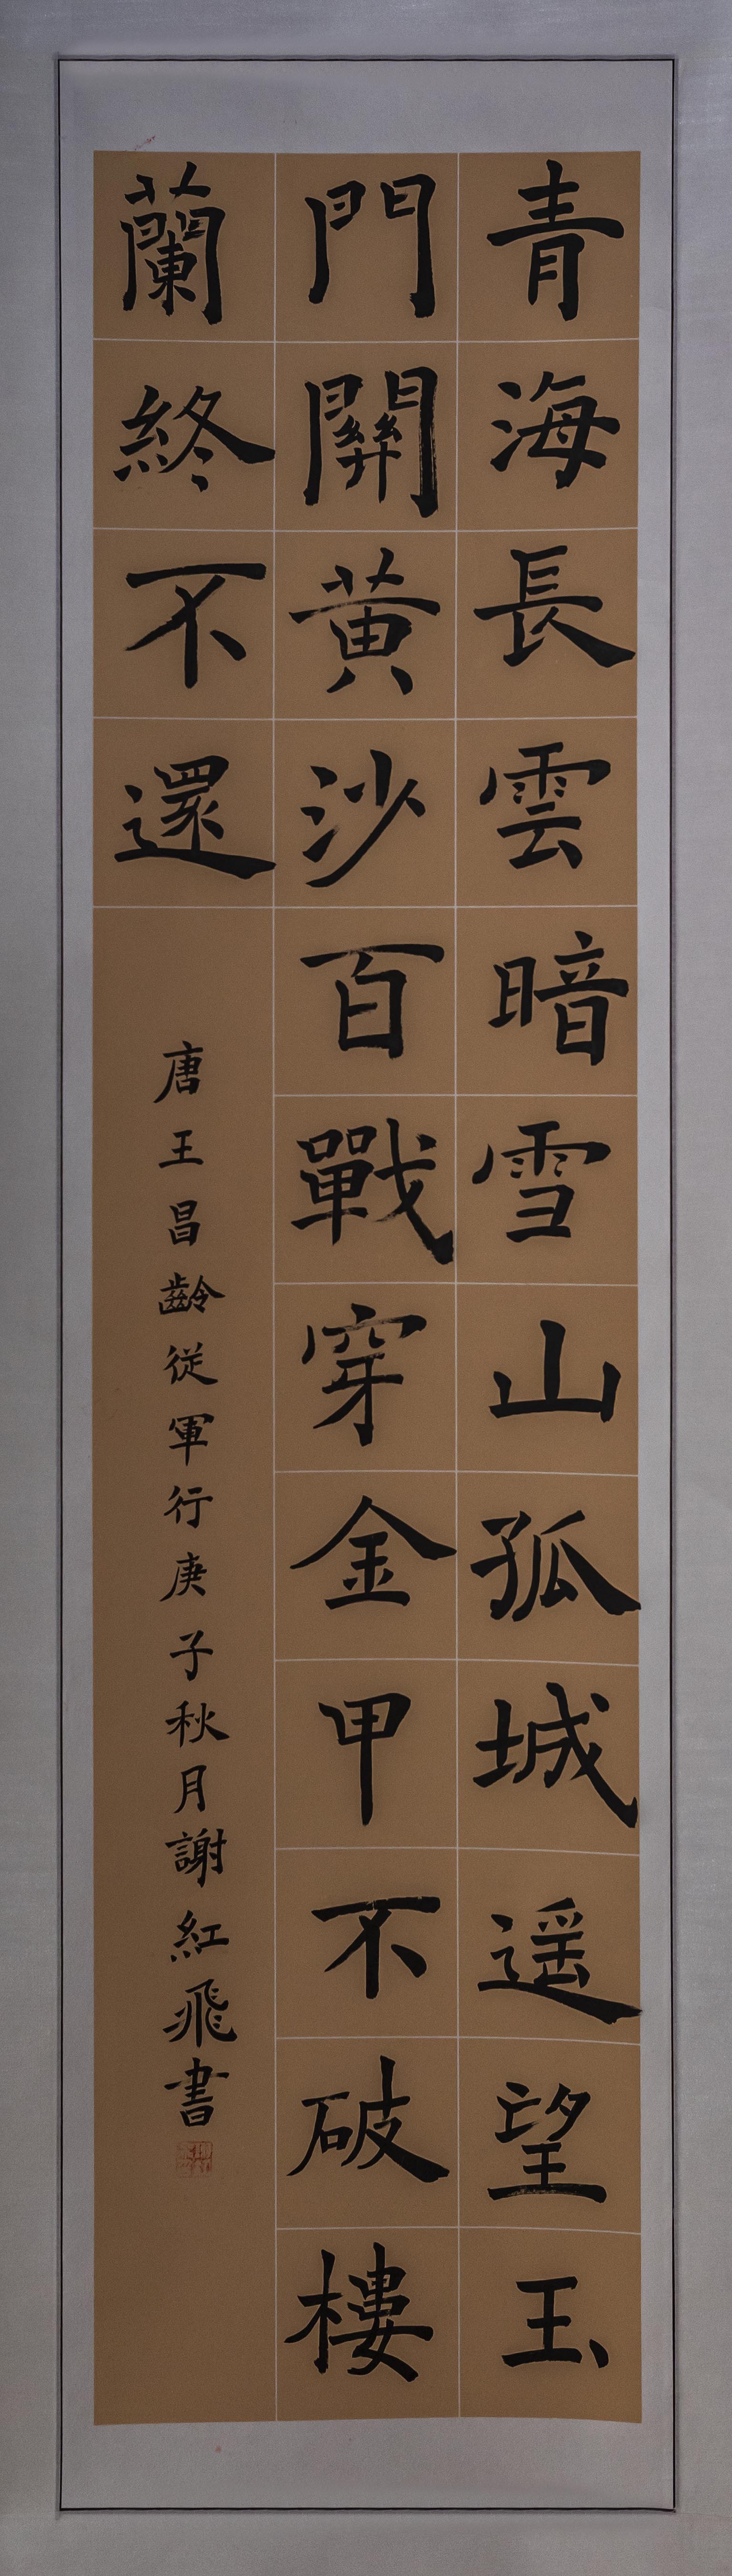 青海長雲暗雪山孤城遥望玉
門關黄沙百戰穿金甲不破樓
蘭終不還
唐王昌齡從軍行庚子秋月謝紅飛書